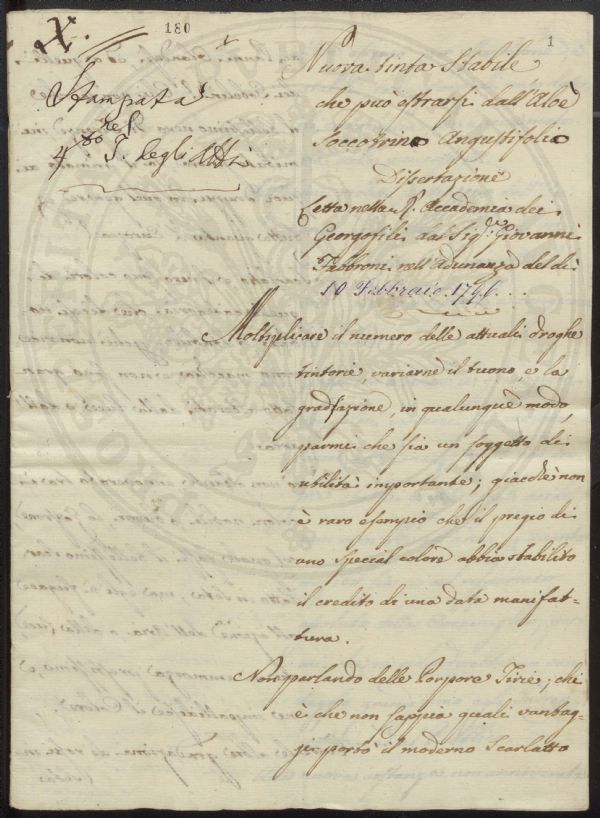 IX.
180
1
Stampata
nel
4to T. degli Atti
Nuova tinta stabile
che può estrarsi dall'Aloè
Soccotrino Angustifolio
Dissertazione
Letta nella R. Accademia dei
Georgofili dal Sigr. Giovanni
Fabbroni nell'Adunanza del dì
10 Febbraio 1796.
Moltiplicare il numero delle attuali droghe
tintorie, variarne il tuono, e la
gradazione, in qualunque modo,
parmi che sia un soggetto di
utilità importante; giacchè non
è raro esempio che il pregio di
uno special colore abbia stabilito
il credito di una data manifat-
tura.
Non parlando delle Porpore Tirie; chi
è che non sappia quali vantag-
gi portò il moderno Scarlatto